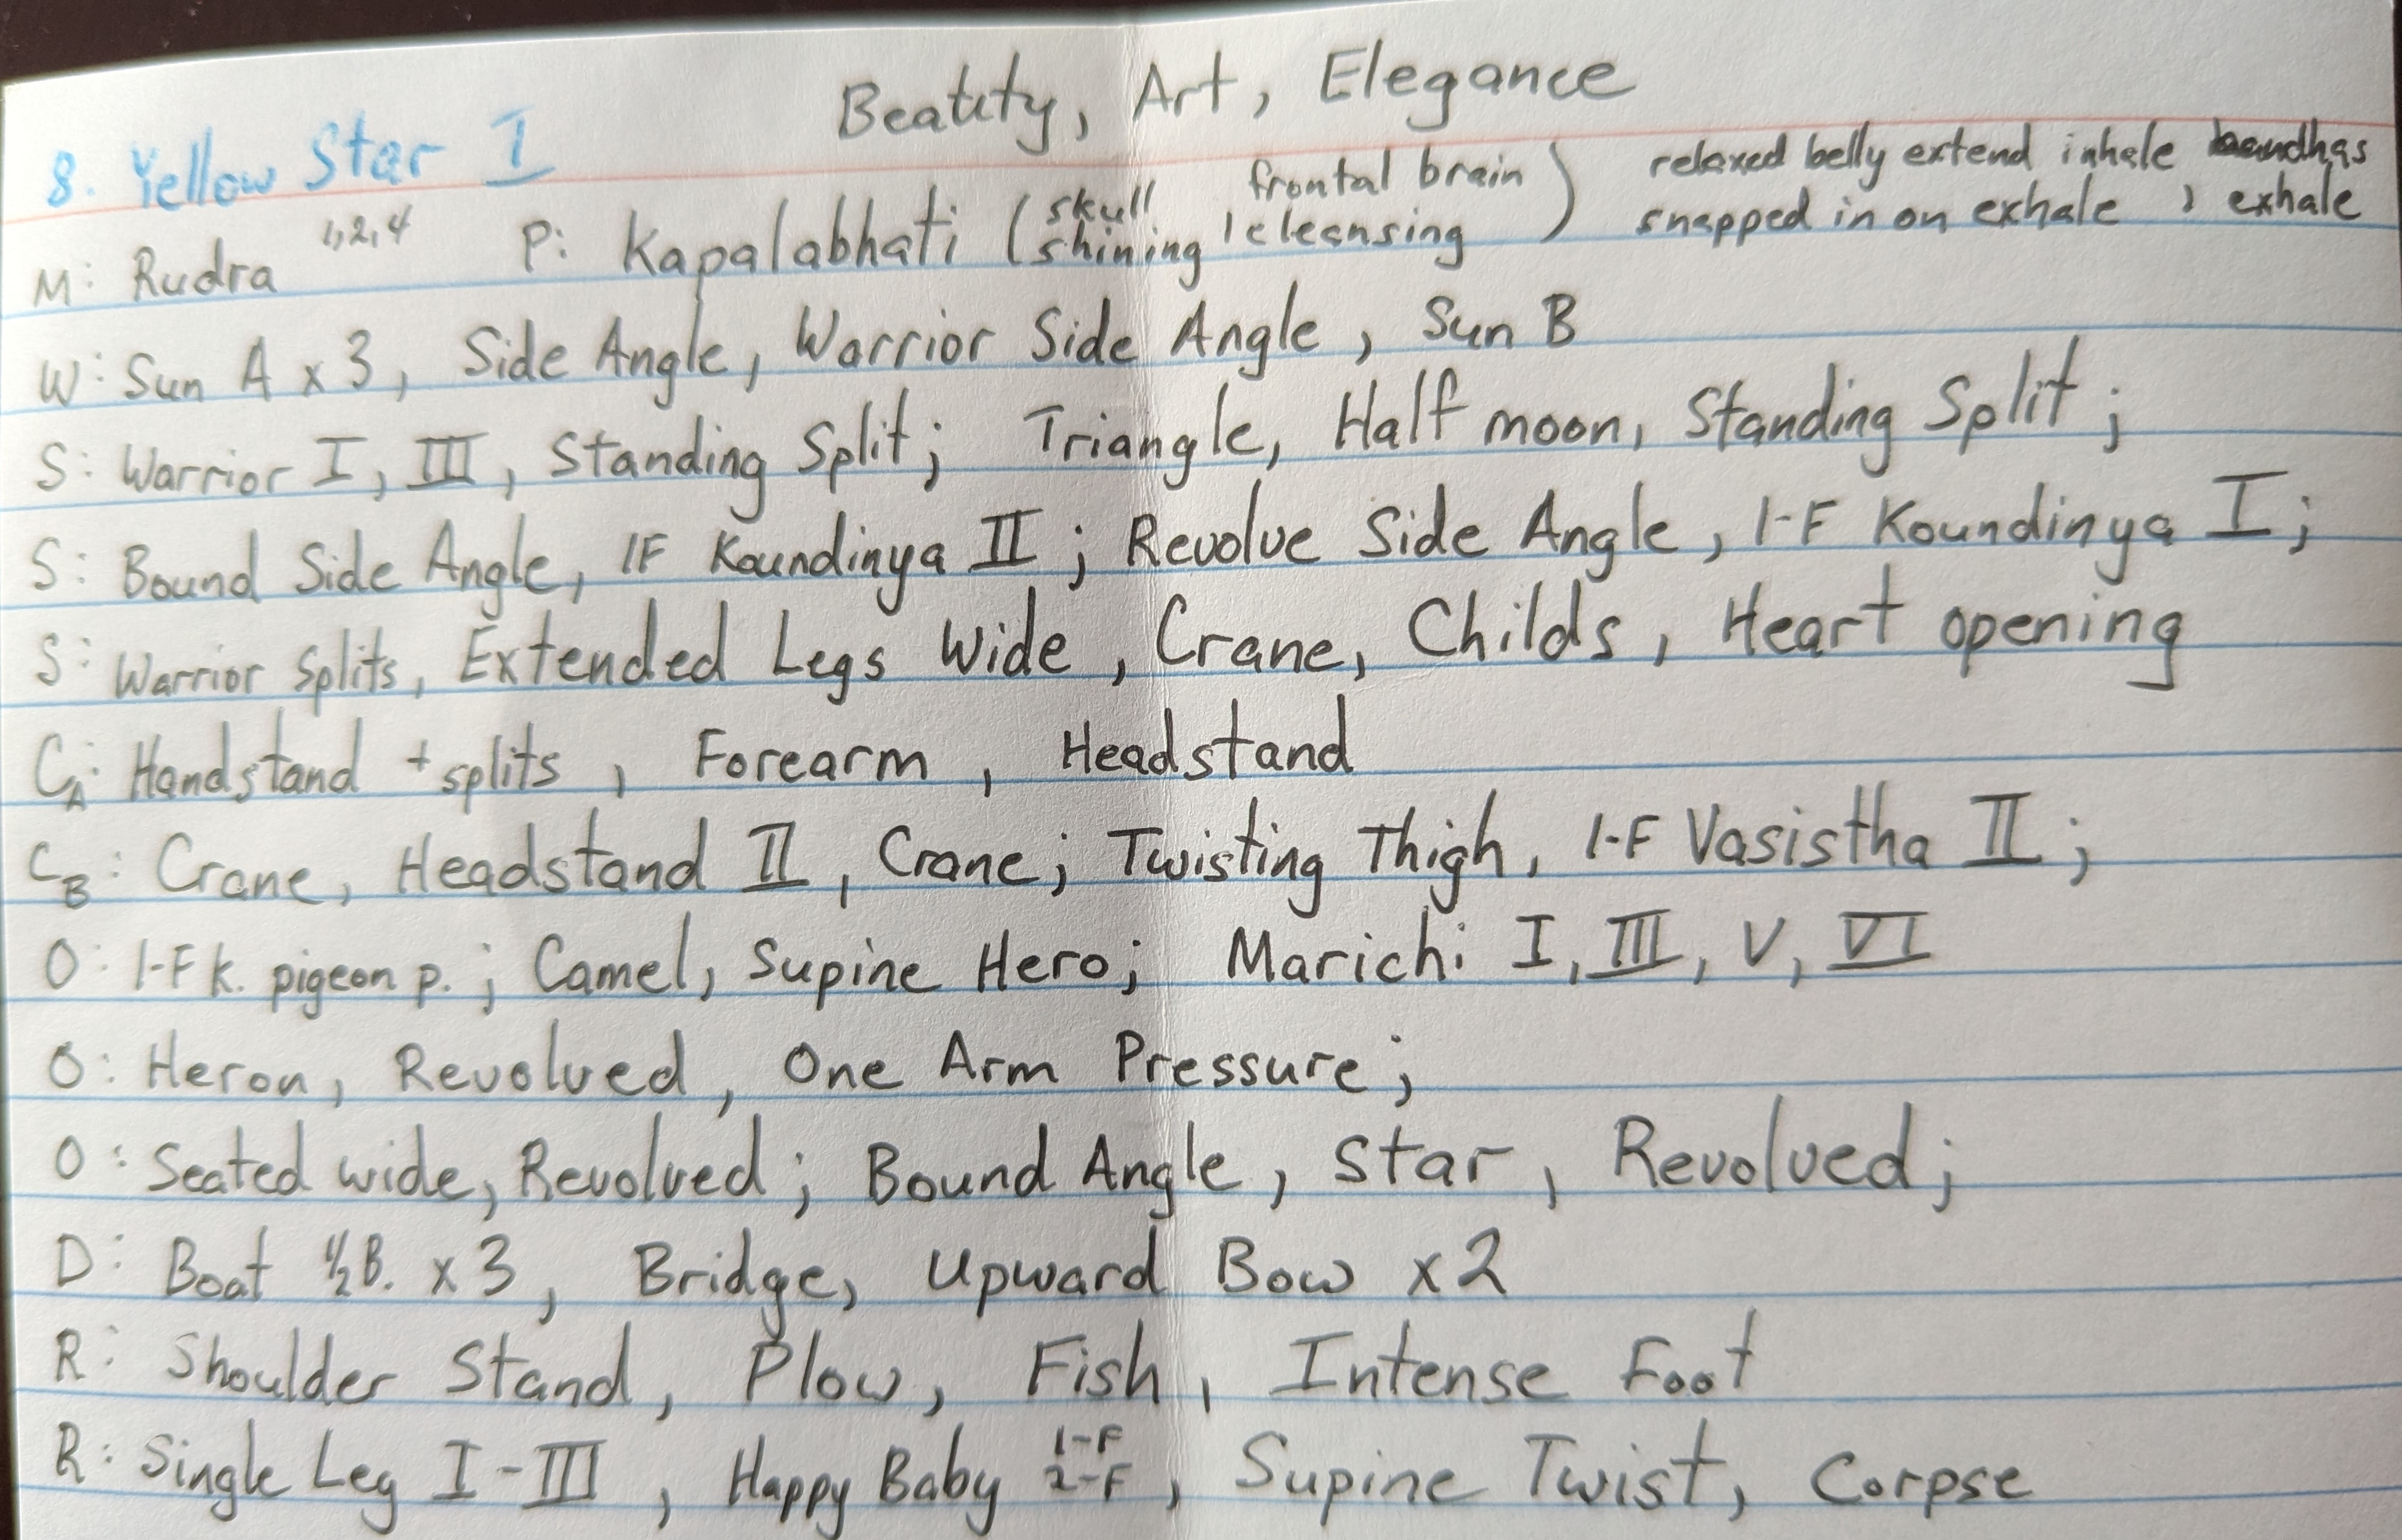 Beatuty, Art, Elegance
8. Yellow Star I
M: Rudra 1,2,4 P: Kapalabhati (skull shining, frontal brain cleansing) relaxed belly extend inhale bandhas
snapped in on exhale, exhale
W: Sun A x 3, Side Angle, Warrior Side Angle, Sun B
S: Warrior I, III, Standing Split; Triangle, Half moon, Standing Split;
S: Bound Side Angle, 1F Koundinya II; Revolve Side Angle, 1-F Koundinya I;
S: Warrior Splits, Extended Legs Wide, Crane, Childs, Heart opening
CA: Handstand + splits, Forearm, Headstand
CB: Crane, Headstand II, Crane; Twisting Thigh, 1-F Vasistha II;
O: 1-F k. pigeon p.; Camel, Supine Hero; Marichi I, III, V, VI
O: Heron, Revolved, One Arm Pressure;
O: Seated wide, Revolved; Bound Angle, Star, Revolved;
D: Boat 1/2 B. x 3, Bridge, Upward Bow x2
R: Shoulder Stand, Plow, Fish, Intense Foot
R: Single Leg I-III, Happy Baby 1-F 2-F, Supine Twist, Corpse